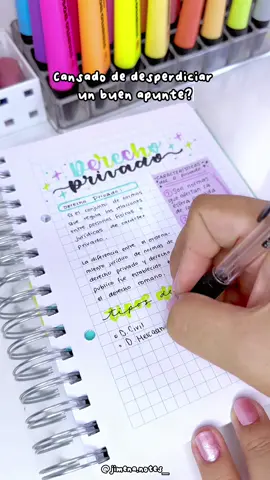 Cansado de desperdiciar
un buen apunte?
Derecho
privado
Derecho Privado:
Es el conjunto de normas
que regula las relaciones
entre personas físicas o
jurídicas de carácter
privado.
CARACTERÍSTICAS
1) Son normas
La diferencia entre el mismo
jurídico de normas de
derecho privado y derecho
público fue establecido
el derecho romano.
tipos de
D. Civil
D.
@jimenanotes_